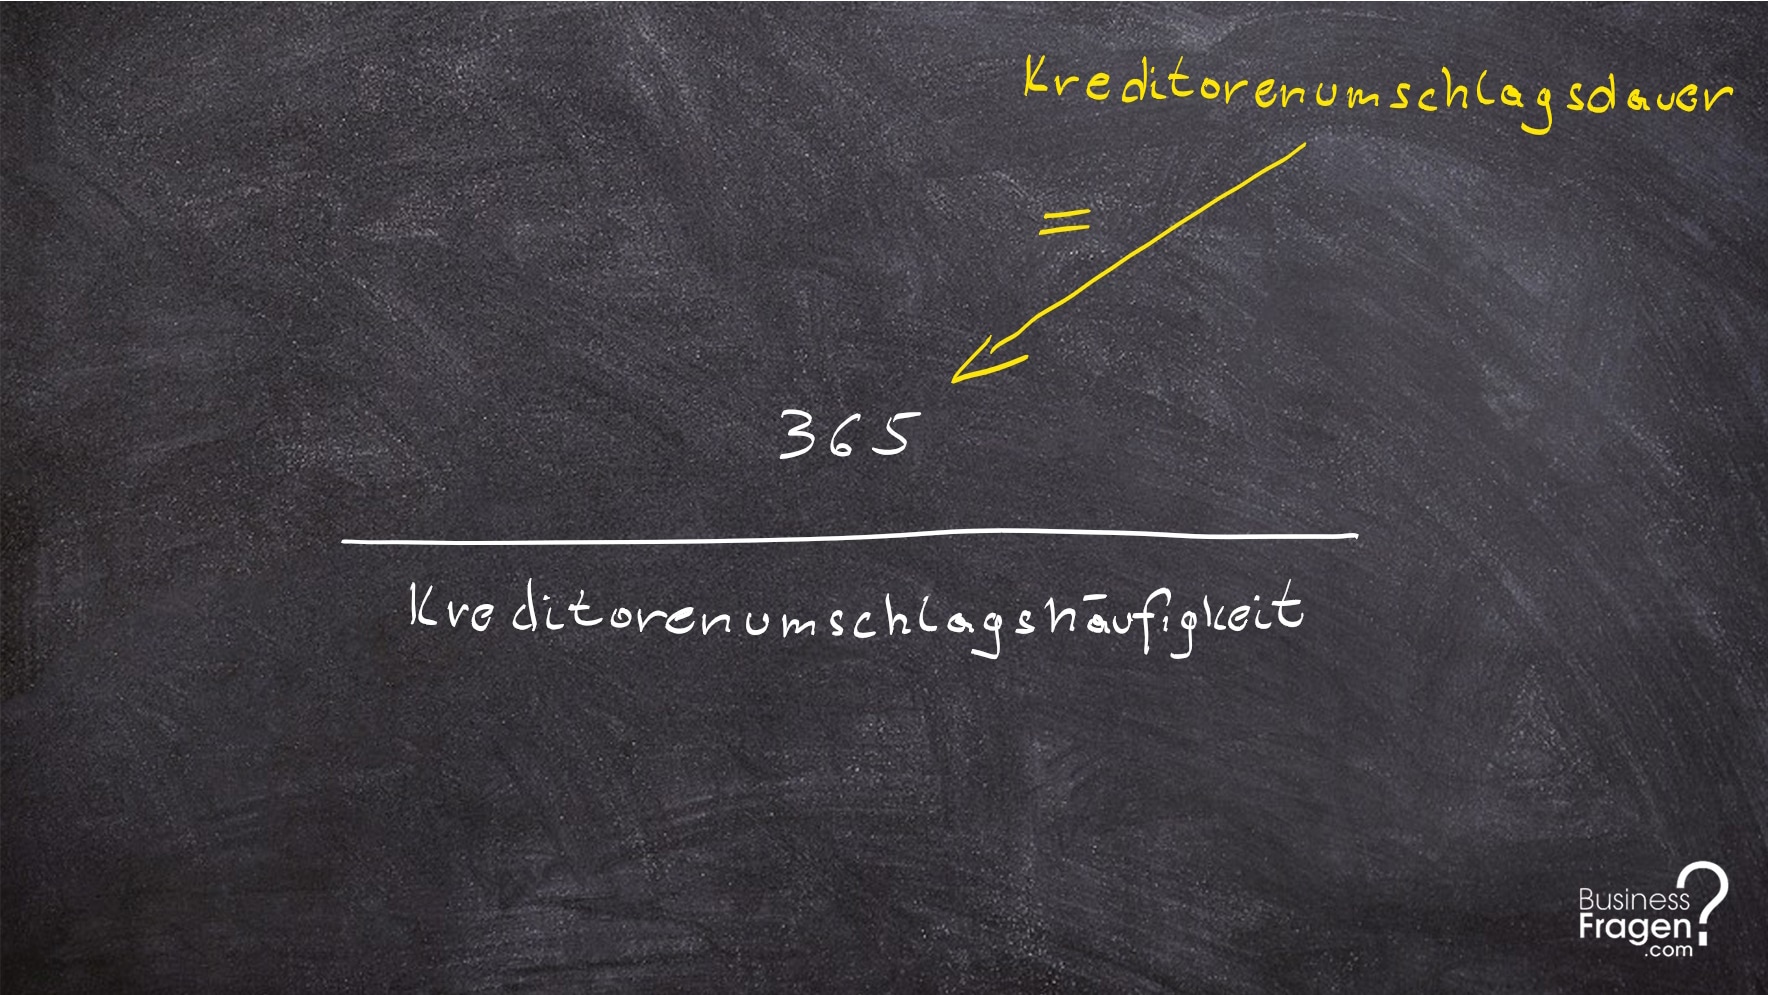 Kreditorenumschlagsdauer
=
365
Kreditorenumschlagshäufigkeit
Business
Fragen
.com
?